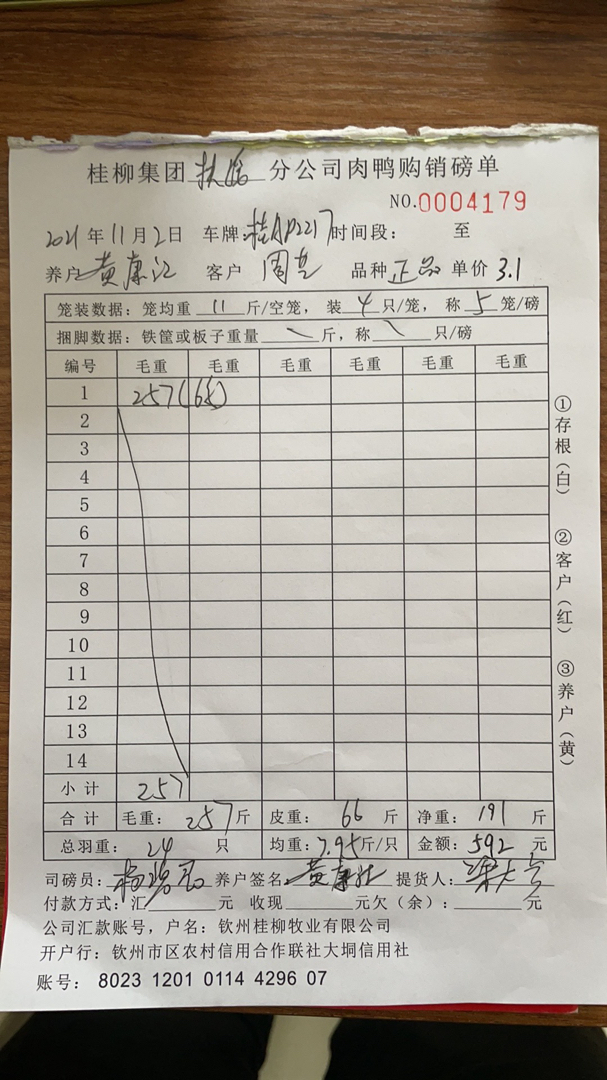 桂柳集团扶绥分公司肉鸭购销磅单
NO.0004179
2021年11月2日 车牌:桂AP2217时间段: 至
养户黄康江 客户 周 品种正品单价3.1
笼装数据:笼均重 11 斤/空笼,装 4 只/笼,称 5 笼/磅
捆脚数据:铁筐或板子重量 \ 斤,称 \ 只/磅
编号 毛重 毛重 毛重 毛重 毛重 毛重
1 257(6)
2
3
4
5
6
7
8
9
10
11
12
13
14
小计 257
合计 毛重: 257斤 皮重: 66 斤 净重: 191 斤
总羽重: 24 只 均重:7.95斤/只 金额:592 元
司磅员:杨 养户签名黄康江 提货人:梁
付款方式:汇 元 收现 元欠(余): 元
公司汇款账号,户名:钦州桂柳牧业有限公司
开户行:钦州市区农村信用合作联社大垌信用社
账号: 8023 1201 0114 4296 07
①存根(白)
②客户(红)
③养户(黄)